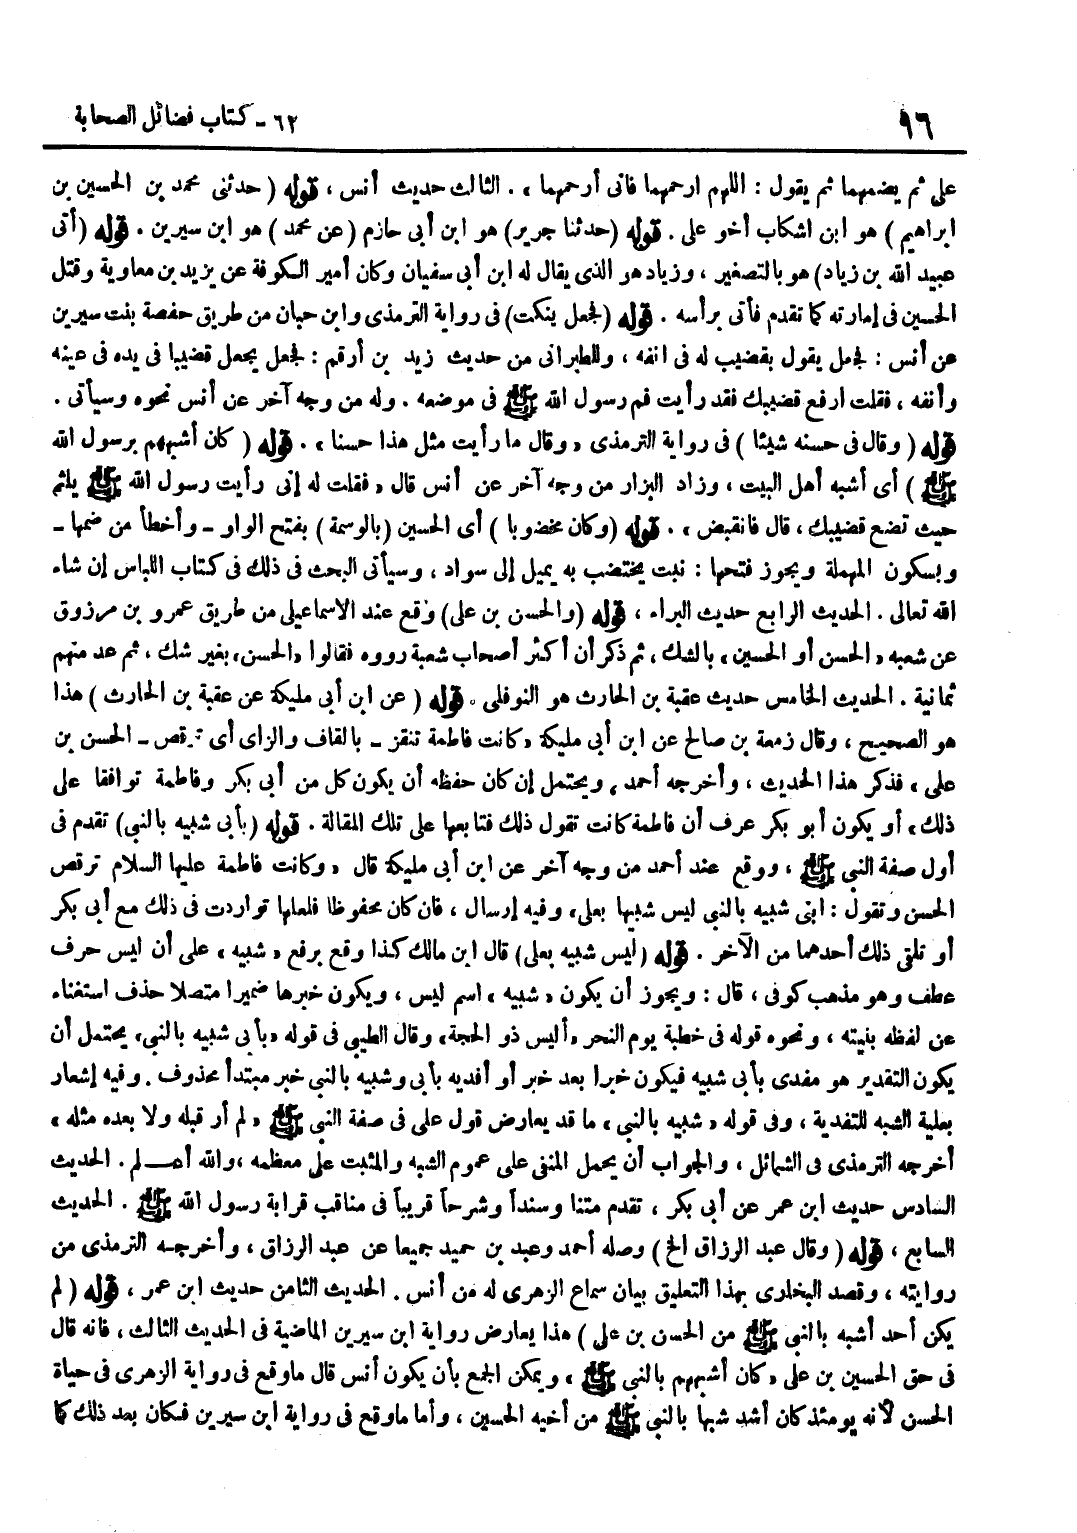 ٩٦
٦٢ - كتاب فضائل الصحابة
على ثم يضمهما ثم يقول : اللهم ارحمهما فانى أرحمهما » . الثالث حديث أنس ، قوله ( حدثنى محمد بن الحسين بن
ابراهيم ) هو ابن اشكاب أخو على . قوله (حدثنا جرير) هو ابن أبى حازم (عن محمد) هو ابن سيرين . قوله (أتى
عبيد الله بن زياد) هو بالتصغير ، وزياد هو الذى يقال له ابن أبى سفيان وكان أمير الكوفة عن يزيد بن معاوية وقتل
الحسين فى إمارته كما تقدم فأتى برأسه . قوله (فجعل ينكت) فى رواية الترمذى وابن حبان من طريق حفصة بنت سيرين
عن أنس : فجعل يقول بقضيب له فى انفه ، وللطبرانى من حديث زيد بن أرقم : فجعل يجعل قضيبا فى يده فى عينه
وأنفه ، فقلت ارفع قضيبك فقد رأيت فم رسول الله ﷺ فى موضعه . وله من وجه آخر عن أنس نحوه وسيأتى .
قوله ( وقال فى حسنه شيئا ) فى رواية الترمذى « وقال ما رأيت مثل هذا حسنا » . قوله ( كان أشبههم برسول الله
ﷺ ) أى أشبه أهل البيت ، وزاد البزار من وجه آخر عن أنس قال « فقلت له إنى رأيت رسول الله ﷺ يلثم
حيث تضع قضيبك ، قال فانقبض » . قوله (وكان مخضوبا ) أى الحسين (بالوسمة ) بفتح الواو - وأخطأ من ضمها -
وبسكون المهملة ويجوز فتحها : نبت يختضب به يميل إلى سواد ، وسيأتى البحث فى ذلك فى كتاب اللباس إن شاء
الله تعالى . الحديث الرابع حديث البراء ، قوله (والحسن بن على) وقع عند الاسماعيلى من طريق عمرو بن مرزوق
عن شعبه « الحسن أو الحسين » بالشك ، ثم ذكر أن أكثر أصحاب شعبة رووه فقالوا «الحسن» بغير شك ، ثم عد منهم
ثمانية . الحديث الخامس حديث عقبة بن الحارث هو النوفلى . قوله ( عن ابن أبى مليكة عن عقبة بن الحارث ) هذا
هو الصحيح ، وقال زمعة بن صالح عن ابن أبى مليكة «كانت فاطمة تنقز - بالقاف والزاى أى ترقص - الحسن بن
على » فذكر هذا الحديث ، وأخرجه أحمد ، ويحتمل إن كان حفظه أن يكون كل من أبى بكر وفاطمة توافقا على
ذلك » أو يكون أبو بكر عرف أن فاطمة كانت تقول ذلك فتابعها على تلك المقالة . قوله (بأبى شبيه بالنبي) تقدم فى
أول صفة النبى ﷺ ، ووقع عند أحمد من وجه آخر عن ابن أبى مليكة قال « وكانت فاطمة عليها السلام ترقص
الحسن وتقول : ابنى شبيه بالنبي ليس شبيها بعلى» وفيه إرسال ، فان كان محفوظا فلعلها تواردت فى ذلك مع أبى بكر
أو تلقى ذلك أحدهما من الآخر . قوله (ليس شبيه بعلى) قال ابن مالك كذا وقع برفع « شبيه » على أن ليس حرف
عطف وهو مذهب كوفى ، قال : ويجوز أن يكون « شبيه » اسم ليس ، ويكون خبرها ضميرا متصلا حذف استغناء
عن لفظه بنيته ، ونحوه قوله فى خطبة يوم النحر «أليس ذو الحجة» وقال الطيبى فى قوله «بأبى شبيه بالنبي» يحتمل أن
يكون التقدير هو مفدى بأبى شبيه فيكون خبرا بعد خبر أو أفديه بأبى وشبيه بالنبي خبر مبتدأ محذوف . وفيه إشعار
بعلية الشبه للتفدية ، وفى قوله « شبيه بالنبي » ما قد يعارض قول على فى صفة النبى ﷺ « لم أر قبله ولا بعده مثله »
أخرجه الترمذى فى الشمائل ، والجواب أن يحمل المنفى على عموم الشبه والمثبت على معظمه ،والله أعـــلم . الحديث
السادس حديث ابن عمر عن أبى بكر ، تقدم متنا وسنداً وشرحاً قريباً فى مناقب قرابة رسول الله ﷺ . الحديث
السابع ، قوله ( وقال عبد الرزاق الخ ) وصله أحمد وعبد بن حميد جميعا عن عبد الرزاق ، وأخرجـه الترمذى من
روايته ، وقصد البخارى بهذا التعليق بيان سماع الزهرى له من أنس . الحديث الثامن حديث ابن عمر ، قوله ( لم
يكن أحد أشبه بالنبى ﷺ من الحسن بن على ) هذا يعارض رواية ابن سيرين الماضية فى الحديث الثالث ، فانه قال
فى حق الحسين بن على « كان أشبههم بالنبى ﷺ » ويمكن الجمع بأن يكون أنس قال ماوقع فى رواية الزهرى فى حياة
الحسن لأنه يومئذ كان أشد شبها بالنبى ﷺ من أخيه الحسين ، وأما ماوقع فى رواية ابن سيرين فكان بعد ذلك كما